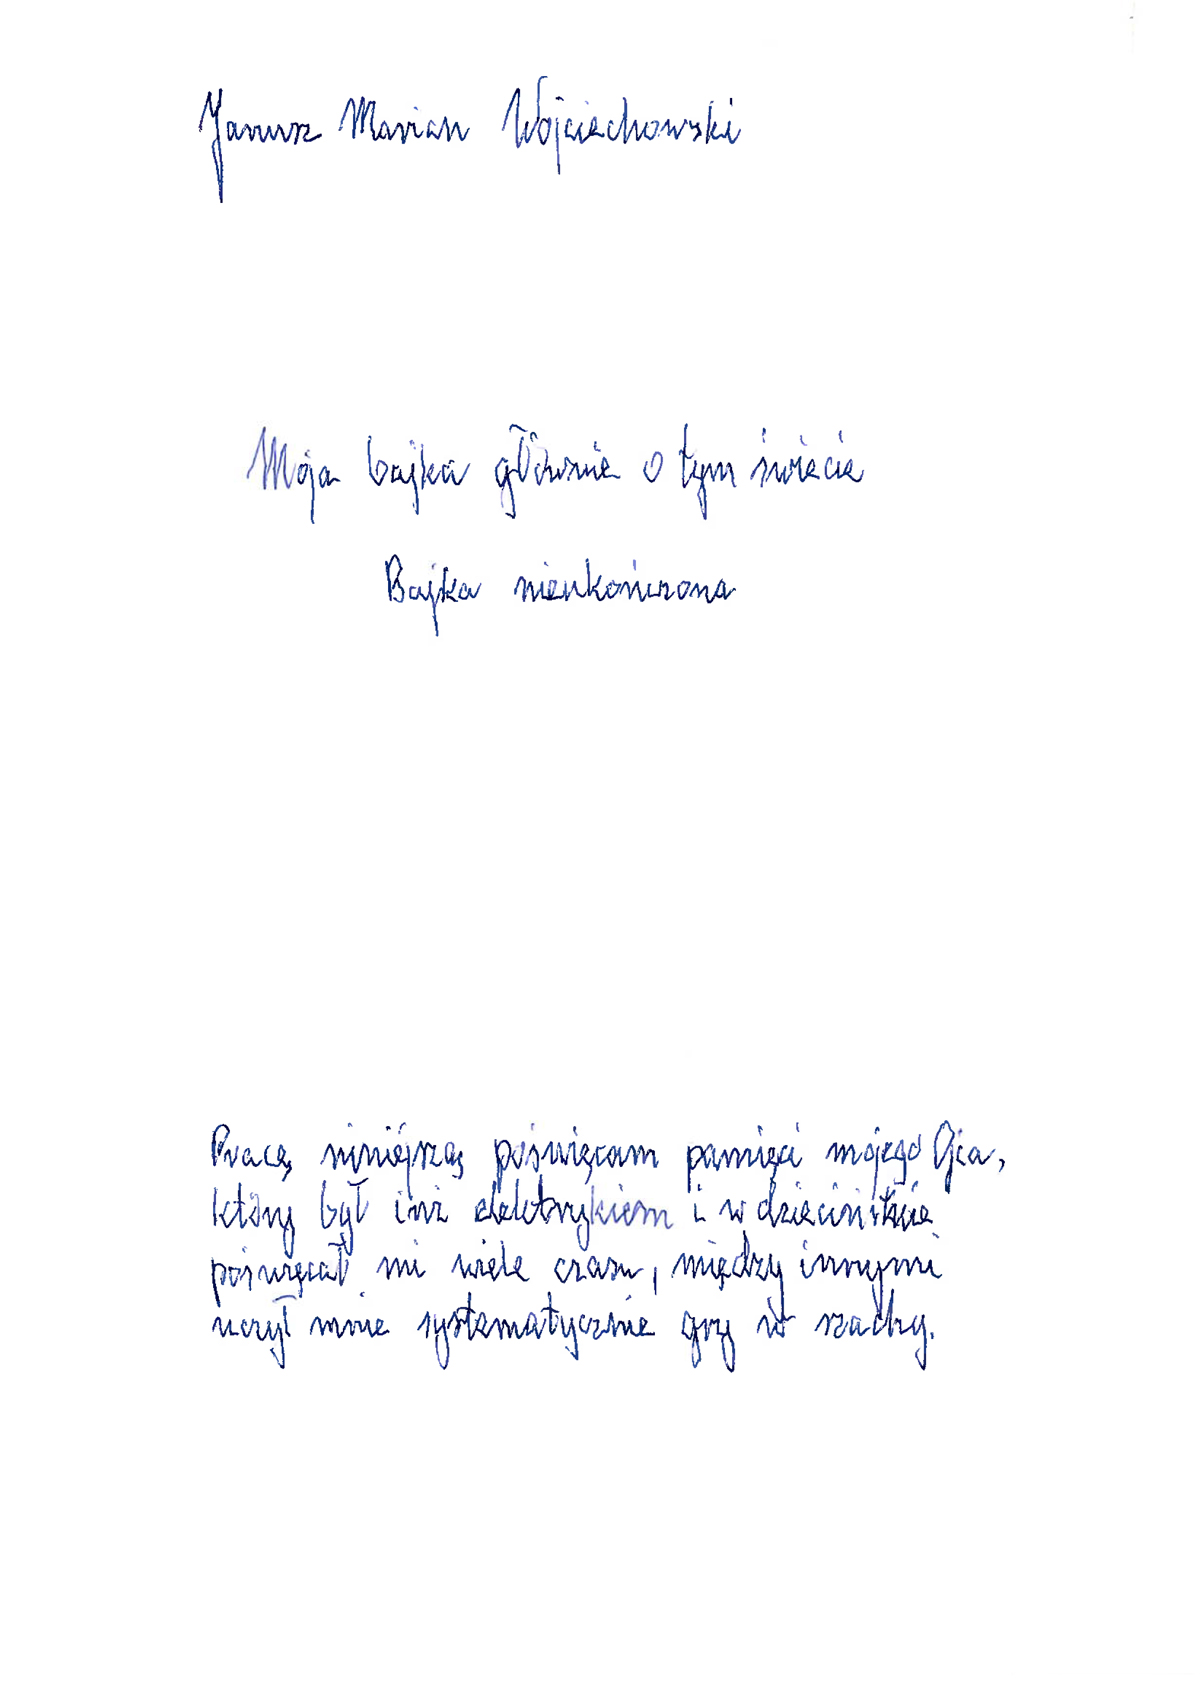 Janusz Marian Wojciechowski
Moja bajka głównie o tym świecie
Bajka nieukończona
Pracę niniejszą poświęcam pamięci mojego Ojca,
który był inż elektrykiem i w dzieciństwie
poświęcał mi wiele czasu, między innymi
uczył mnie systematycznie gry w szachy.